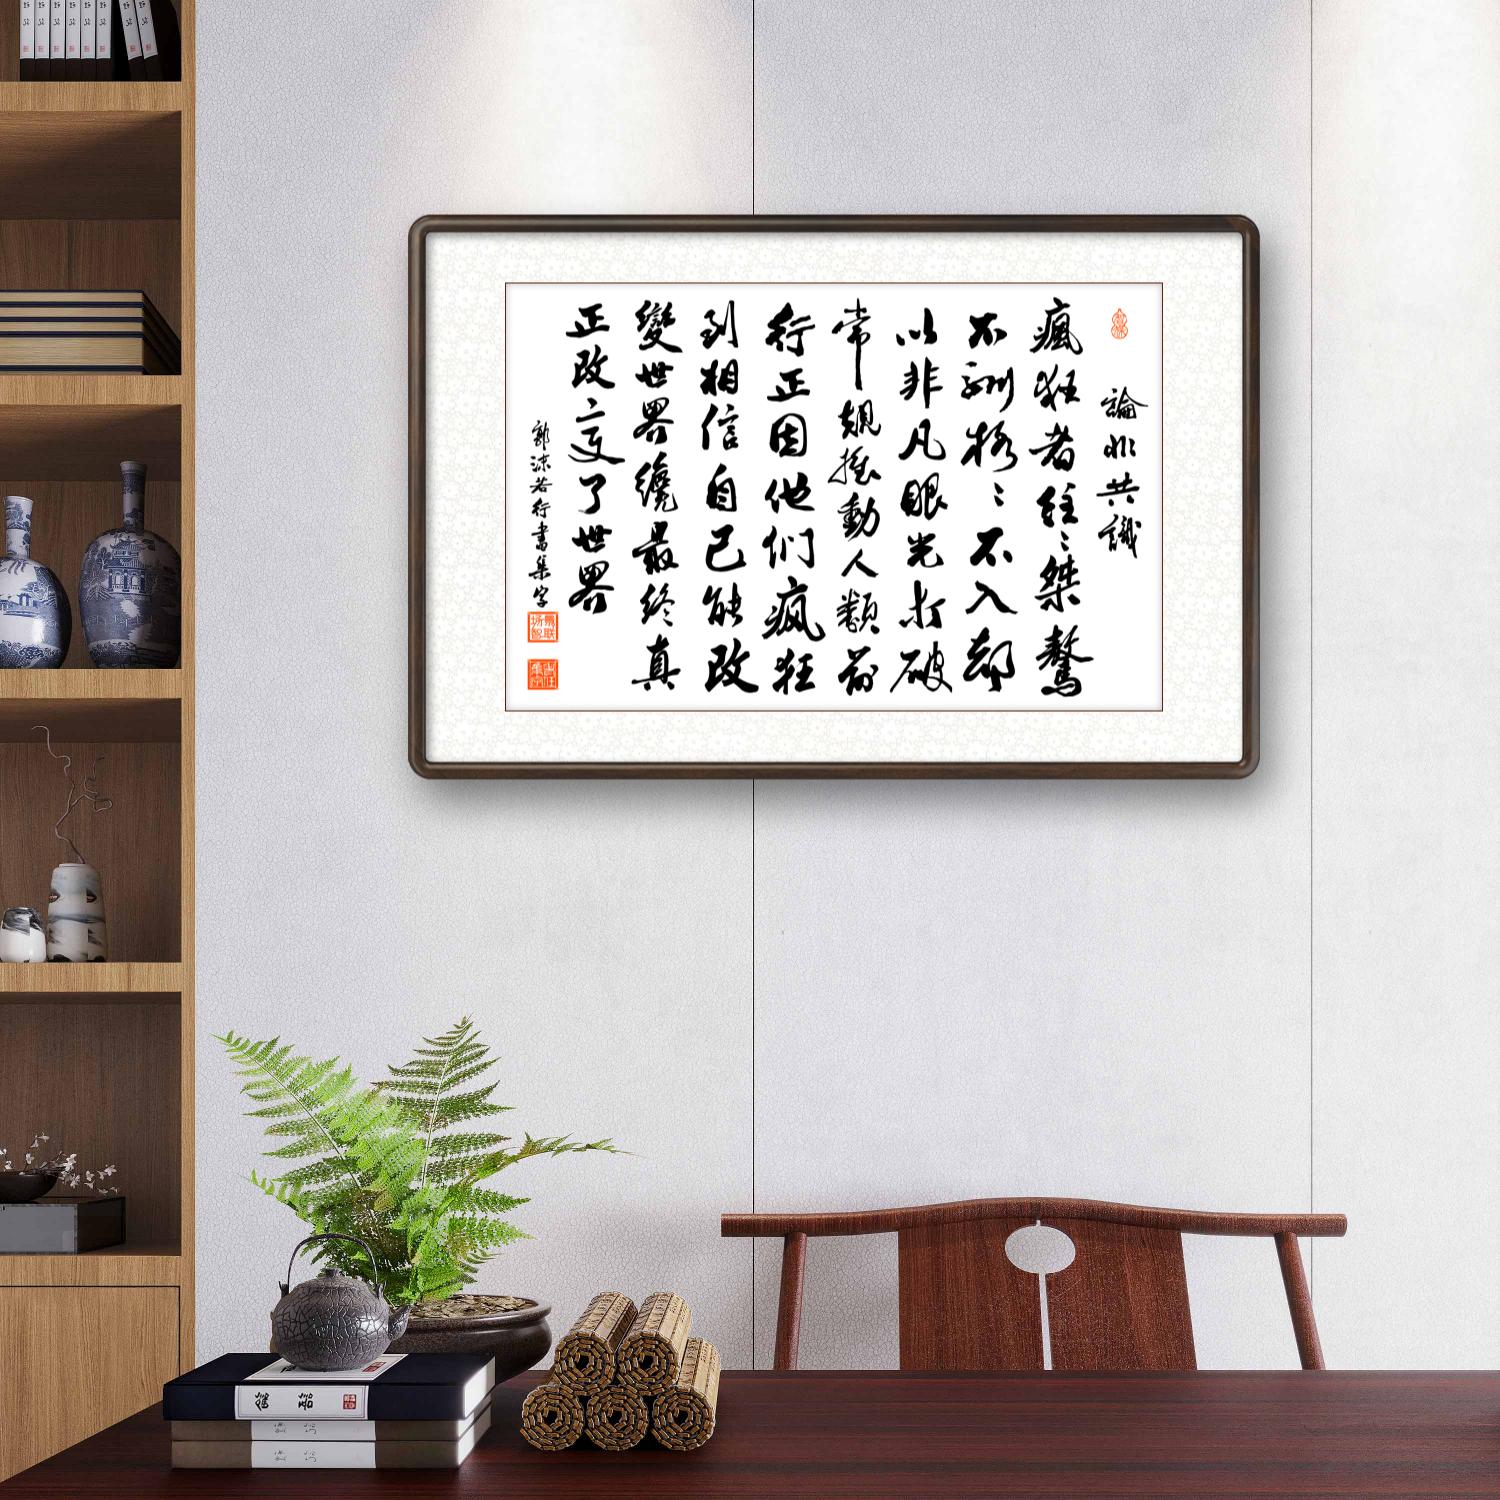 論非共識
瘋狂者往〻桀驁
不馴格〻不入卻
以非凡眼光打破
常規推動人類前
行正因他们疯狂
到相信自己能改
變世界纔最終真
正改变了世界
郭沫若行書集字